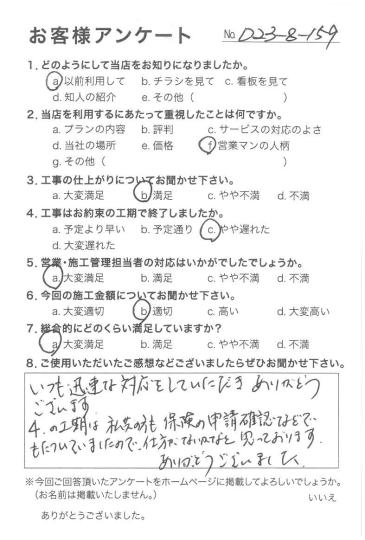 お客様アンケート No. D23-8-159
1. どのようにして当店をお知りになりましたか。
a. 以前利用して b. チラシを見て c. 看板を見て
d. 知人の紹介 e. その他（ ）
2. 当店を利用するにあたって重視したことは何ですか。
a. プランの内容 b. 評判 c. サービスの対応のよさ
d. 当社の場所 e. 価格 f. 営業マンの人柄
g. その他（ ）
3. 工事の仕上がりについてお聞かせ下さい。
a. 大変満足 b. 満足 c. やや不満 d. 不満
4. 工事はお約束の工期で終了しましたか。
a. 予定より早い b. 予定通り c. やや遅れた
d. 大変遅れた
5. 営業・施工管理担当者の対応はいかがでしたでしょうか。
a. 大変満足 b. 満足 c. やや不満 d. 不満
6. 今回の施工金額についてお聞かせ下さい。
a. 大変適切 b. 適切 c. 高い d. 大変高い
7. 総合的にどのくらい満足していますか？
a. 大変満足 b. 満足 c. やや不満 d. 不満
8. ご使用いただいたご感想などございましたらぜひお聞かせ下さい。
いつも迅速な対応をしていただき ありがとう
ございます
4. の工期は 私共の方も 保険の申請確認などで
もたついていましたので、仕方がないかなと 思っております.
ありがとうございました
※今回ご回答頂いたアンケートをホームページに掲載してよろしいでしょうか。
（お名前は掲載いたしません。） いいえ
ありがとうございました。